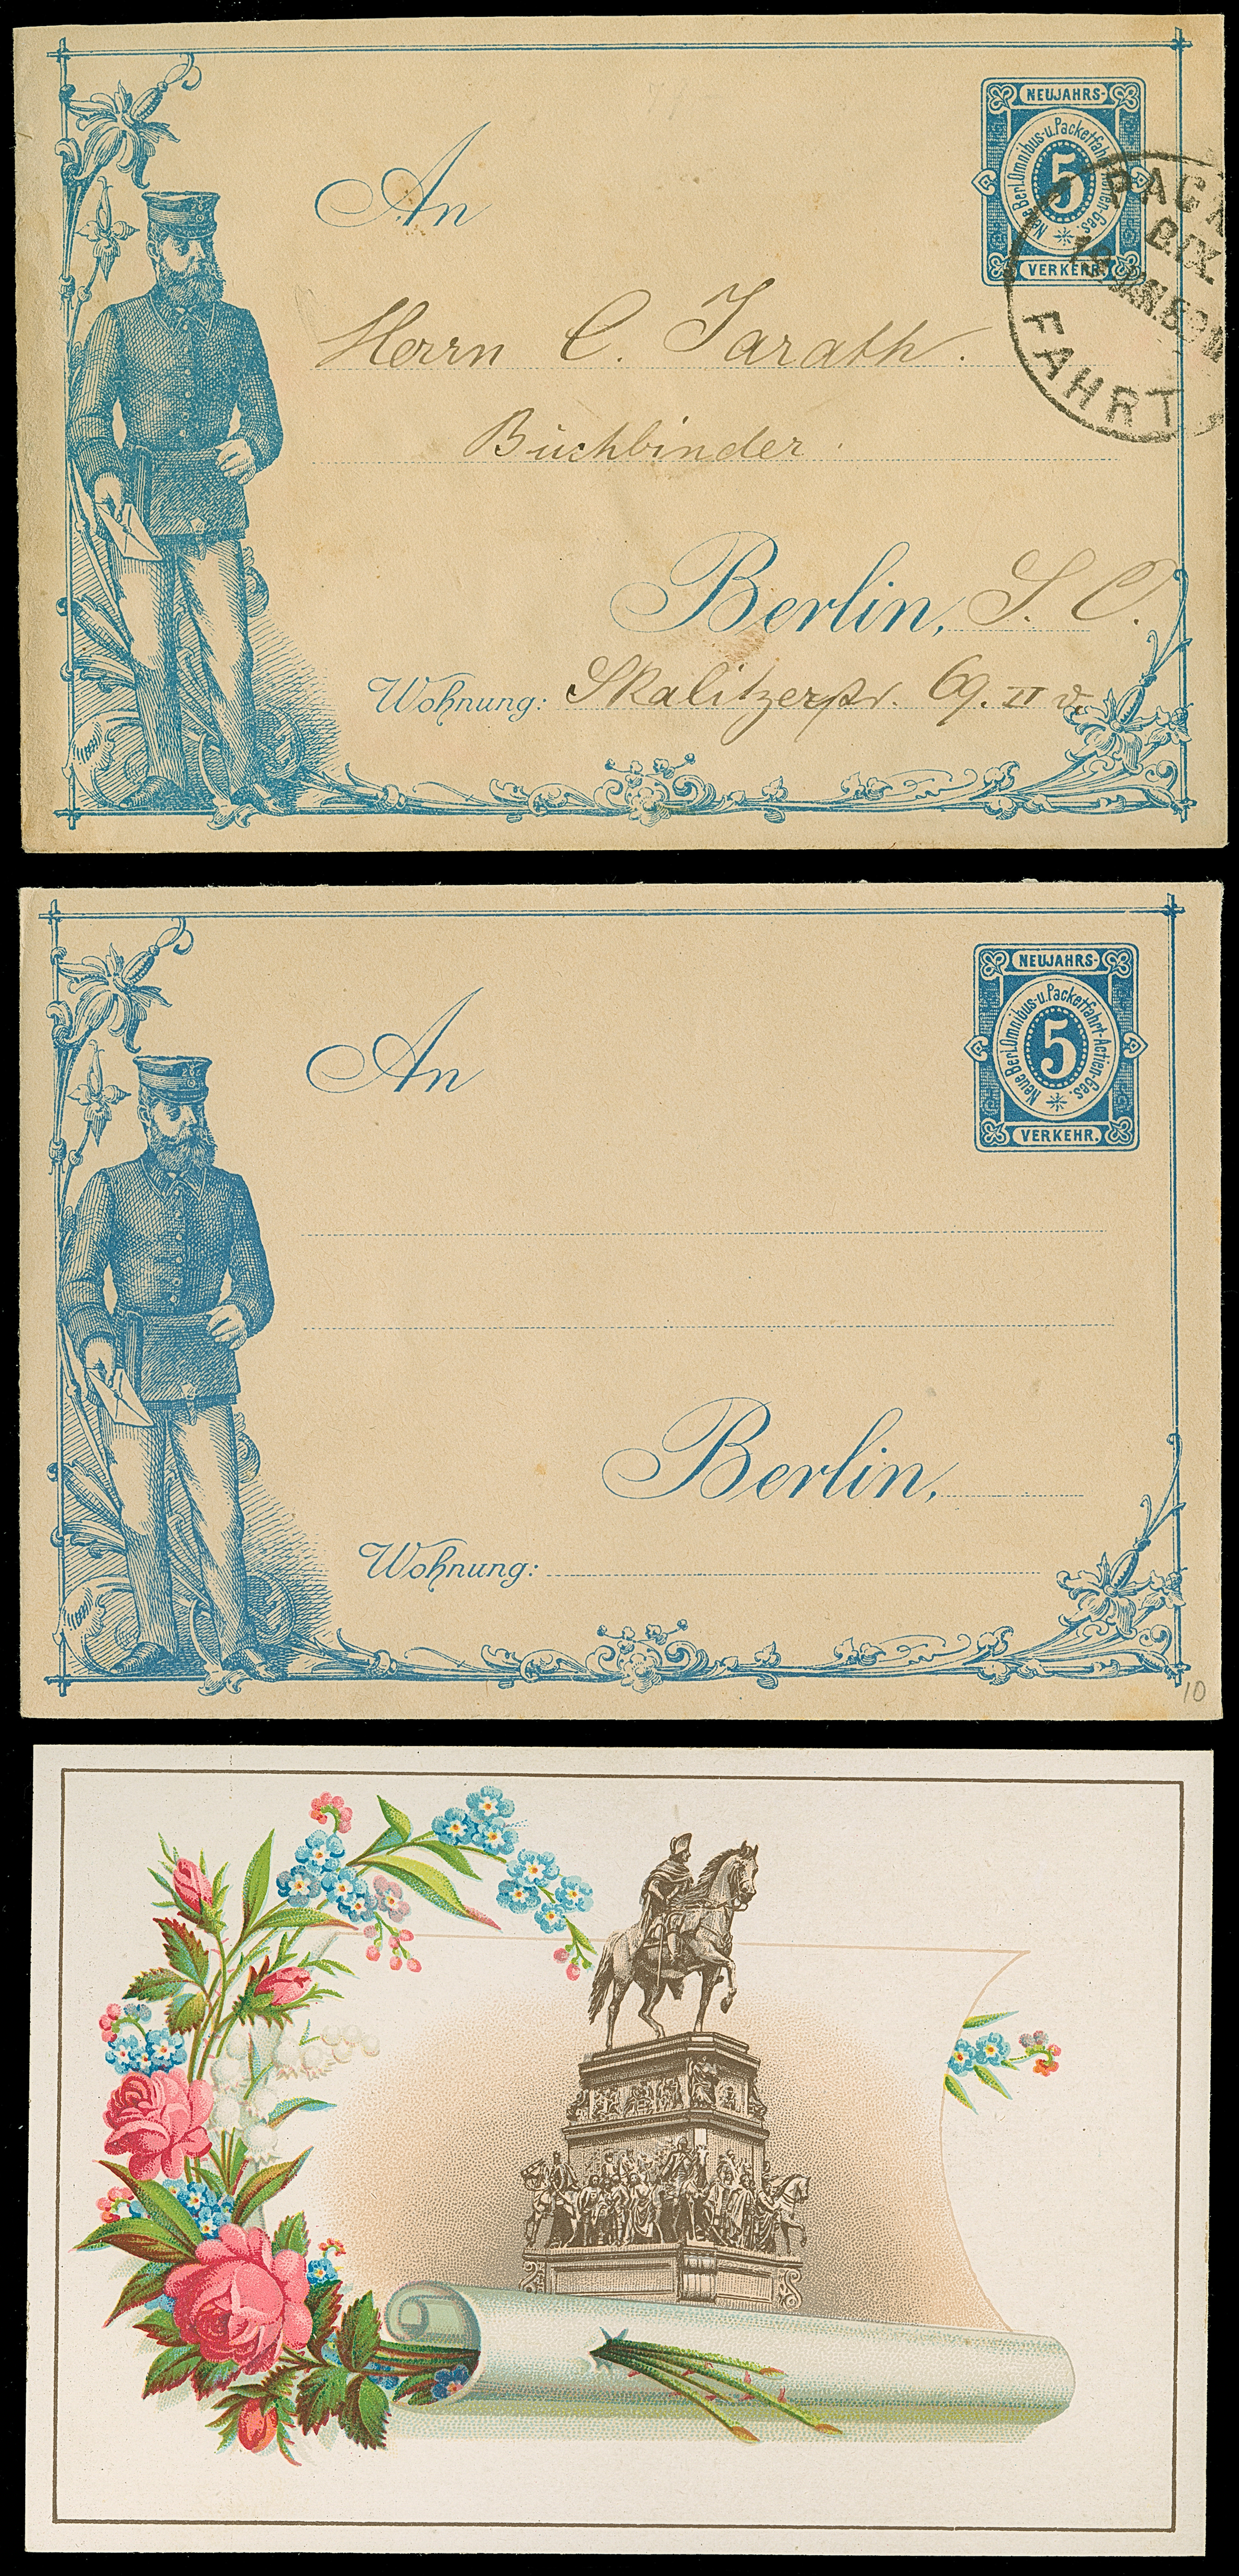 NEUJAHRS-
Neue Berl. Omnibus-u. Packetfahrt-Actien-Ges.
5
VERKEHR.
PACK
FAHRT
An
Herrn C. Jarath.
Buchbinder.
Berlin, S. O.
Wohnung: Skalitzerstr. 69. II v.
NEUJAHRS-
Neue Berl. Omnibus-u. Packetfahrt-Actien-Ges.
5
VERKEHR.
An
Berlin,
Wohnung:
10